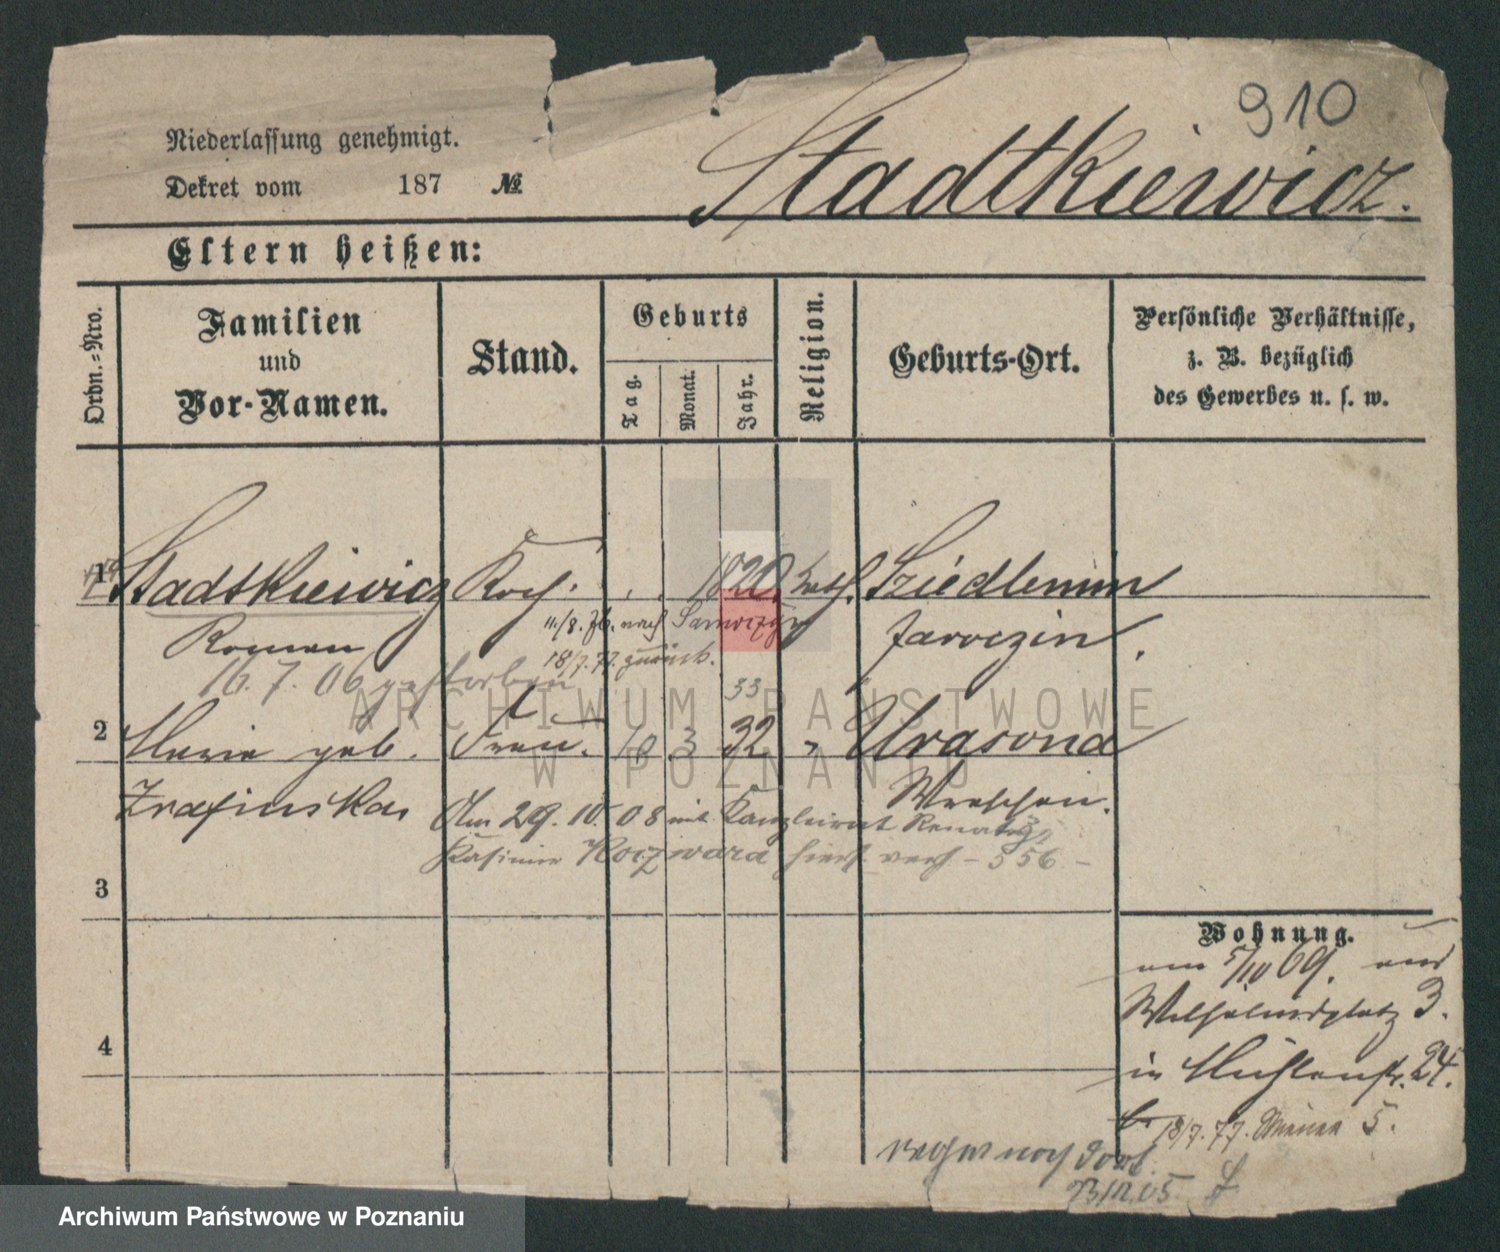 910
Stadtkiewicz.
Niederlassung genehmigt.
Dekret vom 187 №
Eltern heißen:
Ordn.-Nro.
Familien
und
Vor-Namen.
Stand.
Geburts
Tag.
Monat.
Jahr.
Religion.
Geburts-Ort.
Persönliche Verhältnisse,
z. B. bezüglich
des Gewerbes u. s. w.
1 Stadtkiewicz Koch. 1820. kath. Sziedlemin
Roman
11./8. 76. nach
Jaroczin.
18/7. 77. zurück.
16. 7. 06 gestorben
33
2 Marie geb. Frau. 10 3 32 "
Wreschen.
Am 29. 10. 08 mit Kanzleirat
Kasimir Koczwara hier verh - 556 -
3
Wohnung.
am 5/10 69. aus
Wilhelmsplatz 3.
4
in Mühlenstr. 24.
18/7. 77. 5.
noch dort.
23/12.05
ARCHIWUM PAŃSTWOWE
W POZNANIU
Archiwum Państwowe w Poznaniu